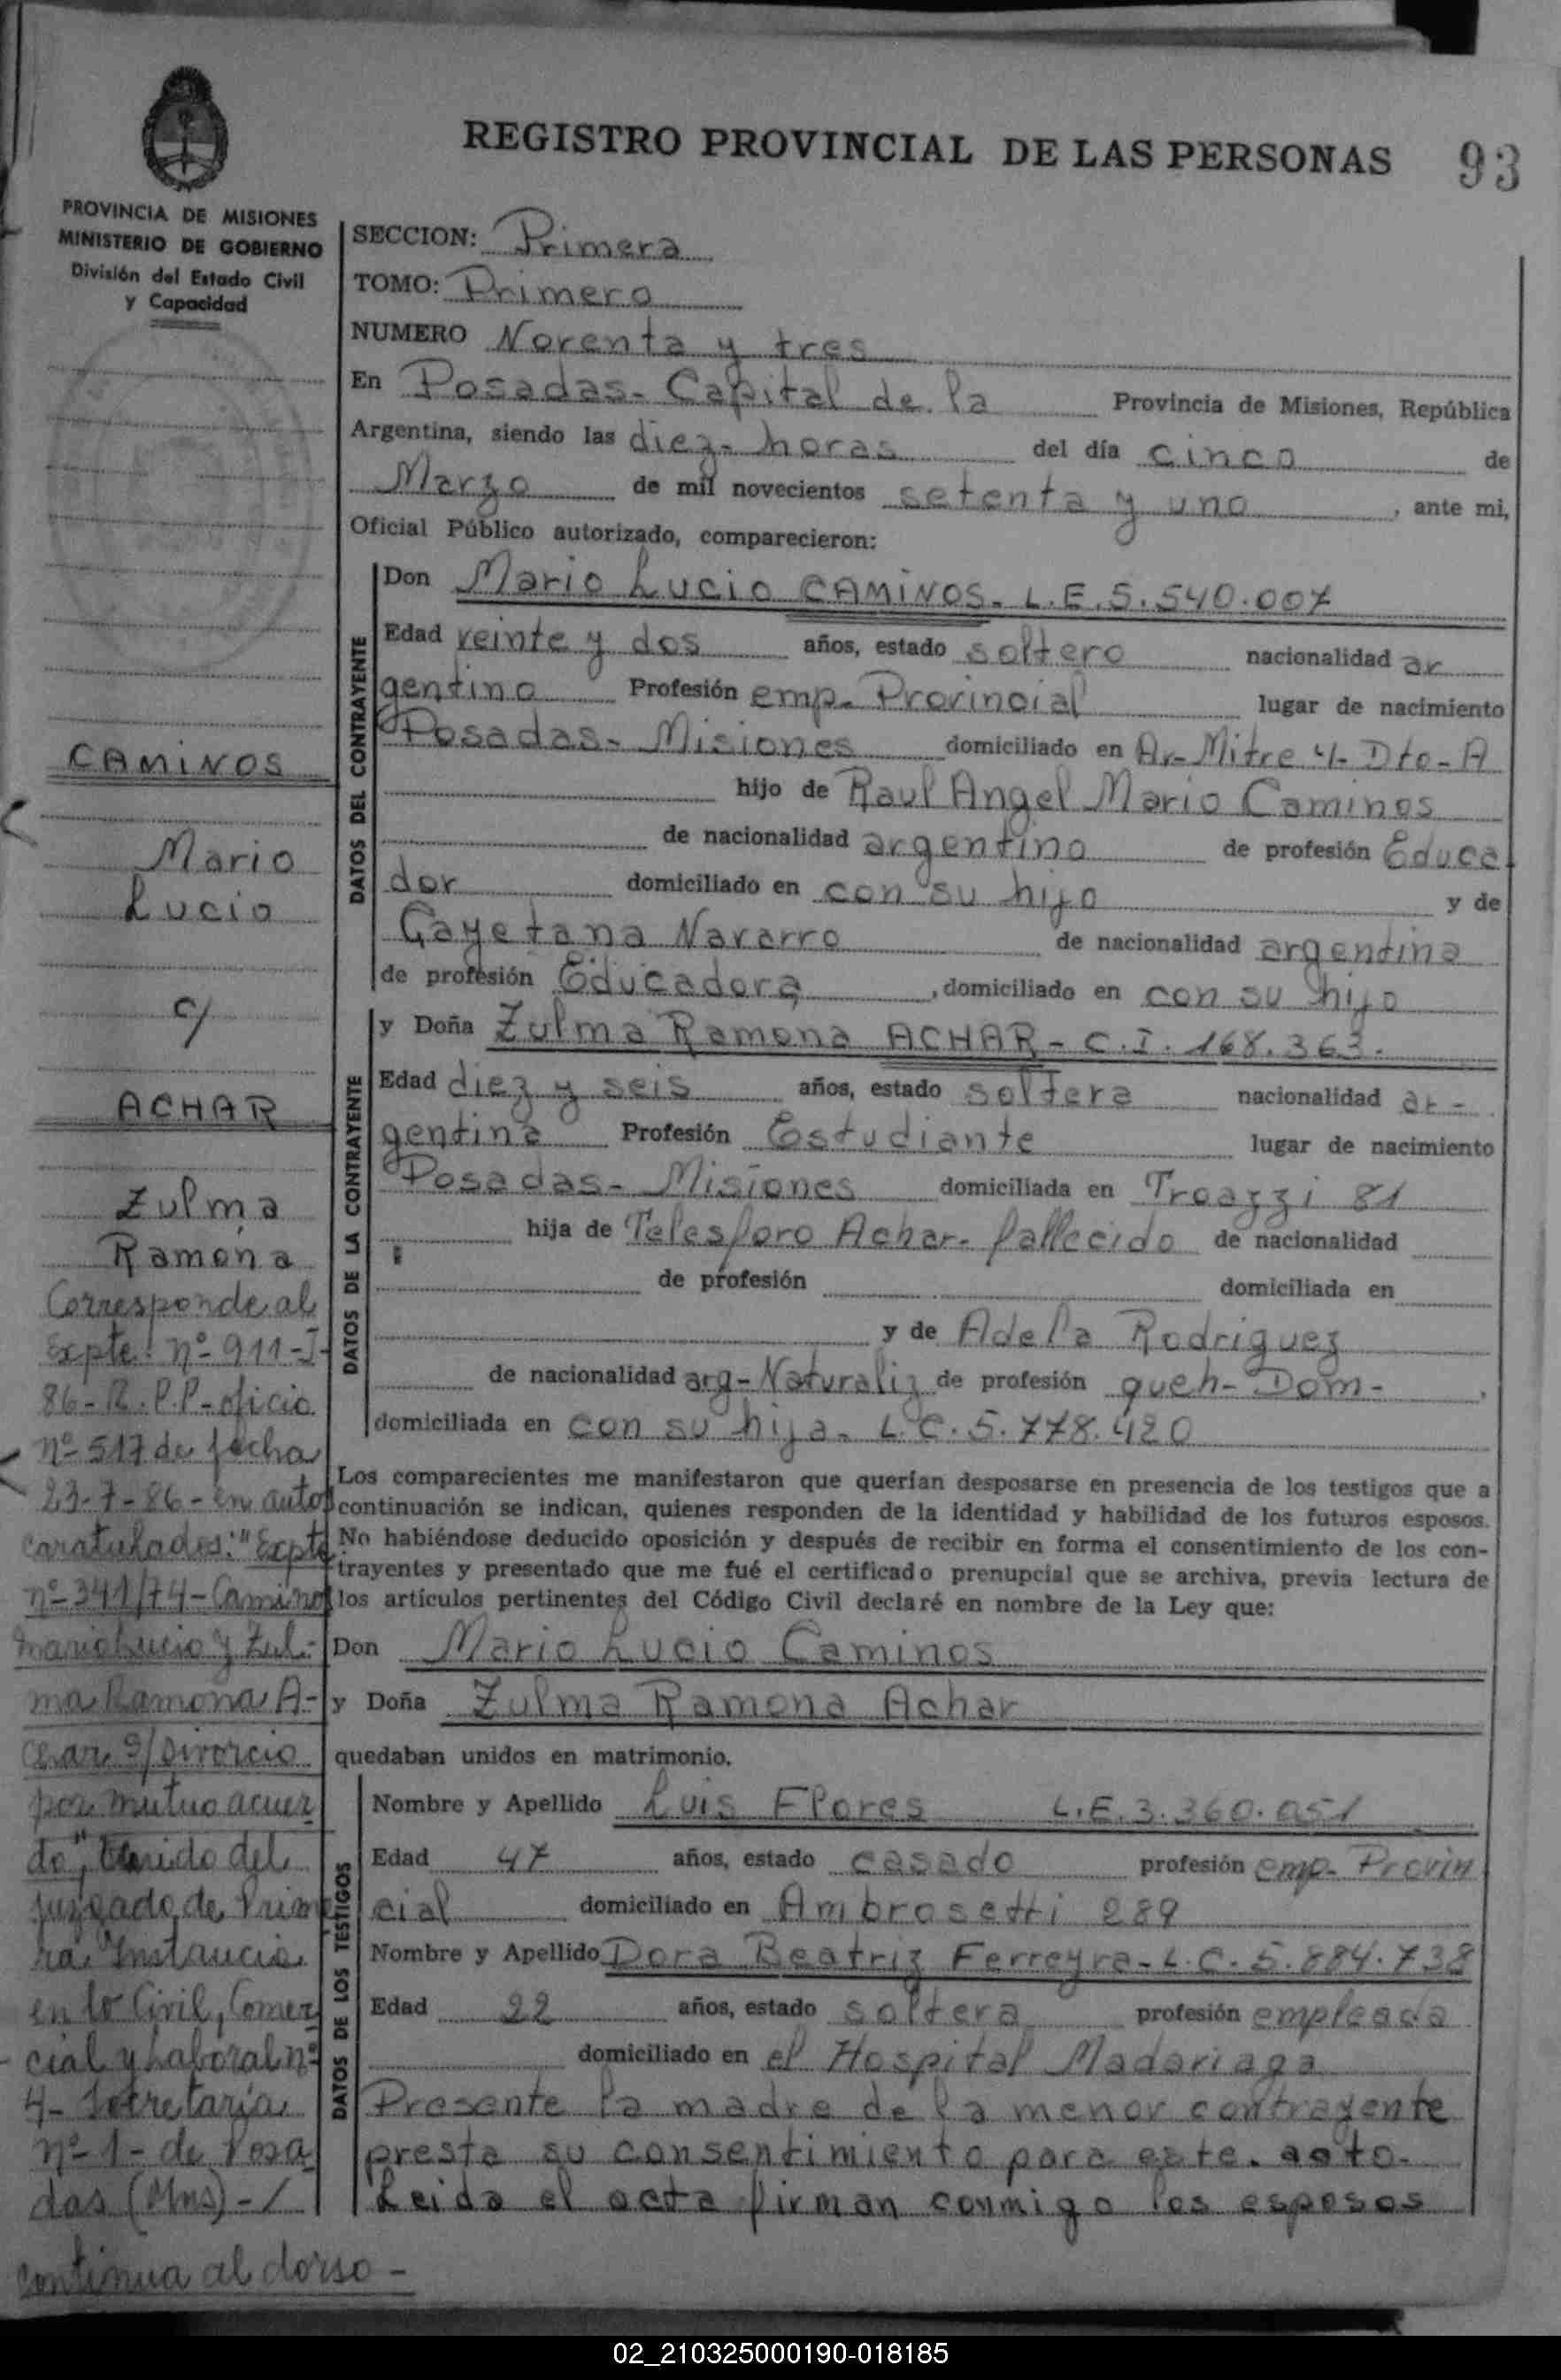 REGISTRO PROVINCIAL DE LAS PERSONAS 93
PROVINCIA DE MISIONES
MINISTERIO DE GOBIERNO
División del Estado Civil
y Capacidad
SECCION: Primera
TOMO: Primero
NUMERO Noventa y tres
En Posadas- Capital de la Provincia de Misiones, República
Argentina, siendo las diez- horas del día cinco de
Marzo de mil novecientos setenta y uno, ante mi,
Oficial Público autorizado, comparecieron:
DATOS DEL CONTRAYENTE
Don Mario Lucio CAMINOS- L.E.5.540.007
Edad veinte y dos años, estado soltero nacionalidad ar
gentino Profesión emp- Provincial lugar de nacimiento
Posadas- Misiones domiciliado en Av- Mitre 4- Dto- A
hijo de Raul Angel Mario Caminos
de nacionalidad argentino de profesión Educa
dor domiciliado en con su hijo y de
Cayetana Navarro de nacionalidad argentina
de profesión Educadora, domiciliado en con su hijo
DATOS DE LA CONTRAYENTE
y Doña Zulma Ramona ACHAR- C.I. 168.363.
Edad diez y seis años, estado soltera nacionalidad ar-
gentina Profesión Estudiante lugar de nacimiento
Posadas- Misiones domiciliada en Troazzi 81
hija de Telesforo Achar- fallecido de nacionalidad
de profesión domiciliada en
y de Adela Rodriguez
de nacionalidad arg- Naturaliz de profesión queh- Dom-,
domiciliada en con su hija- L.C.5.778.420
Los comparecientes me manifestaron que querían desposarse en presencia de los testigos que a
continuación se indican, quienes responden de la identidad y habilidad de los futuros esposos.
No habiéndose deducido oposición y después de recibir en forma el consentimiento de los con-
trayentes y presentado que me fué el certificado prenupcial que se archiva, previa lectura de
los artículos pertinentes del Código Civil declaré en nombre de la Ley que:
Don Mario Lucio Caminos
y Doña Zulma Ramona Achar
quedaban unidos en matrimonio.
DATOS DE LOS TESTIGOS
Nombre y Apellido Luis Flores L.E.3.360.051
Edad 47 años, estado casado profesión emp- Provin
cial domiciliado en Ambrosetti 289
Nombre y Apellido Dora Beatriz Ferreyra- L.C.5.884.738
Edad 22 años, estado soltera profesión empleada
domiciliado en el Hospital Madariaga
Presente la madre de la menor contrayente
presta su consentimiento para este. acto.
Leida el acta firman conmigo los esposos
CAMINOS
Mario
Lucio
c/
ACHAR
Zulma
Ramona
Corresponde al
Expte! nº 911-I-
86- R.P.P- oficio
nº 517 de fecha
23-7-86- en autos
caratulados: "Expte
nº 341/74- Caminos
Mario Lucio y Zul-
ma Ramona A-
char s/ Divorcio
por mutuo acuer
do", del
juzgado de Prime
ra Instancia
en lo Civil, Comer
cial y Laboral nº
4- Secretaría
nº 1- de Posa
das (Mns)-/
continua al dorso-
02_210325000190-018185